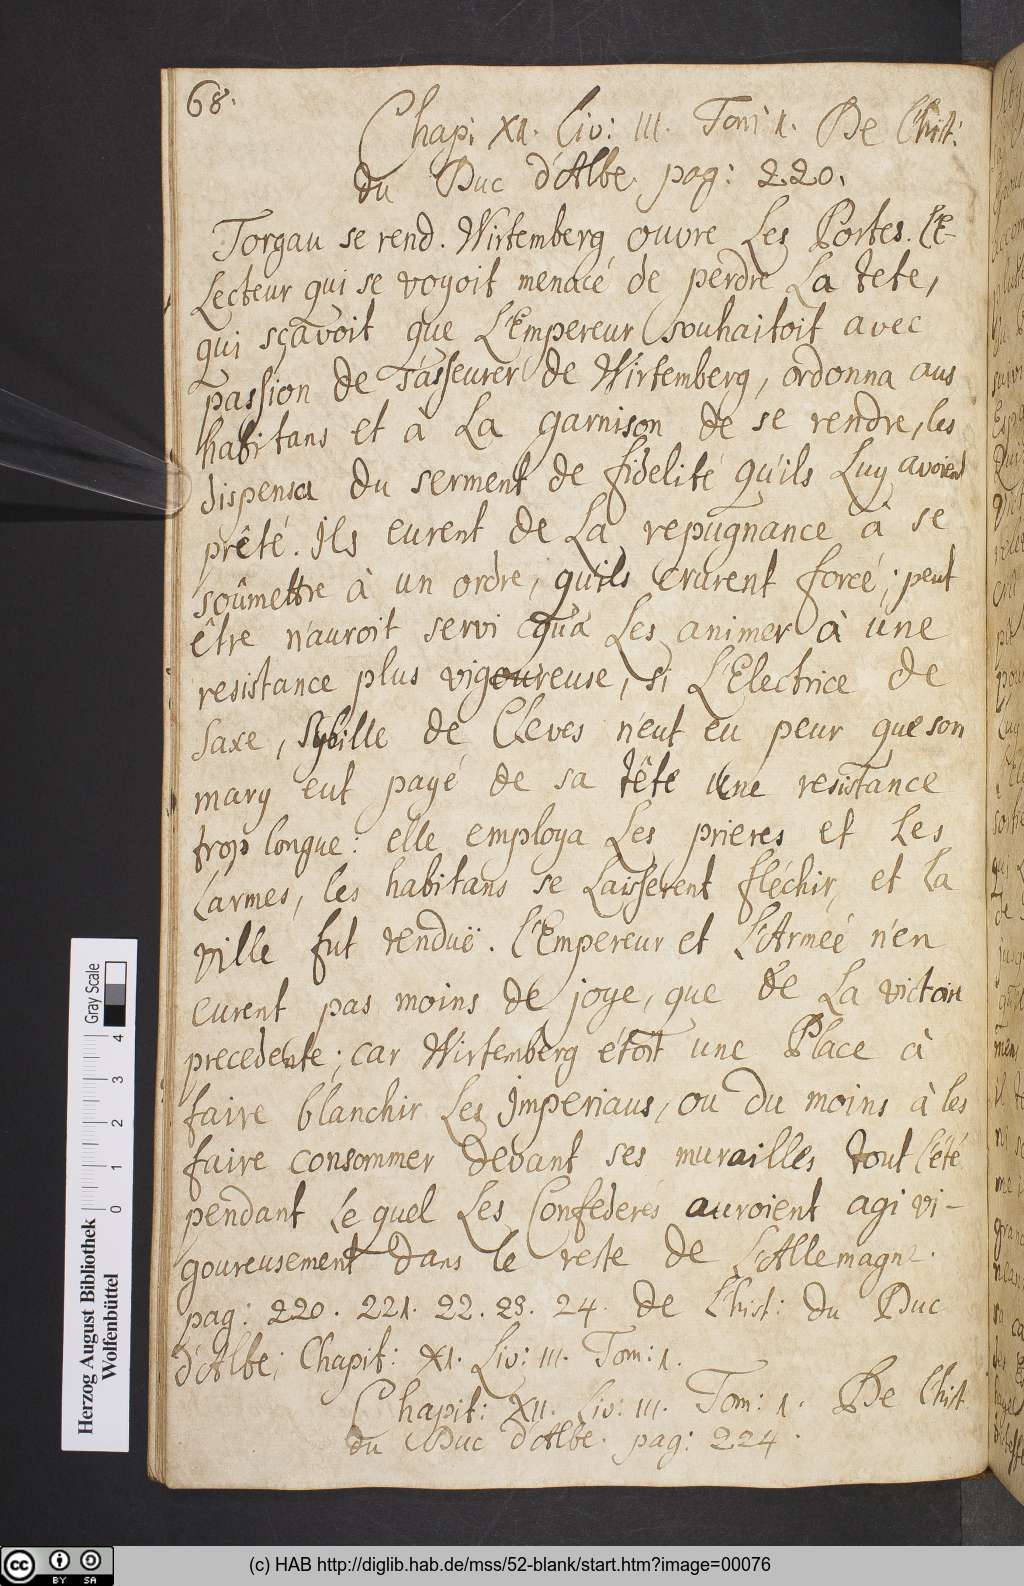 68.
Chap: XI. Liv: III. Tom: 1. De l'hist:
du Duc d'Albe. pag: 220.
Torgau se rend. Wirtemberg ouvre Les Portes. L'E-
Lecteur qui se voyoit menacé de perdre La tete,
qui sçavoit que L'Empereur souhaitoit avec
passion de s'asseurer de Wirtemberg, ordonna aus
habitans et à La garnison de se rendre, les
dispensa du serment de fidelité qu'ils Luy avoient
prêté. Ils eurent de La repugnance à se
soûmettre à un ordre, qu'ils crurent forcé; peut
être n'auroit servi qu'a Les animer à une
resistance plus vigoureuse, si L'Electrice de
Saxe, Sybille de Cleves n'eut eu peur que son
mary eut payé de sa tête une resistance
trop longue: elle employa Les prieres et Les
Larmes, les habitans se Laisserent fléchir, et La
ville fut renduë. L'Empereur et L'Armée n'en
eurent pas moins de joye, que de La victoire
precedente; car Wirtemberg étoit une Place à
faire blanchir Les Imperiaus, ou du moins à les
faire consommer devant ses murailles tout l'été
pendant Le quel Les Confederés auroient agi vi-
goureusement dans le reste de L'Allemagne.
pag: 220. 221. 22. 23. 24. de l'hist: du Duc
d'Albe; Chapit: XI. Liv: III. Tom: 1.
Chapit: XII. Liv: III. Tom: 1. De l'hist.
du Duc d'Albe. pag: 224.
Herzog August Bibliothek
Wolfenbüttel
0 1 2 3 4
Gray Scale
cc BY SA
(c) HAB http://diglib.hab.de/mss/52-blank/start.htm?image=00076